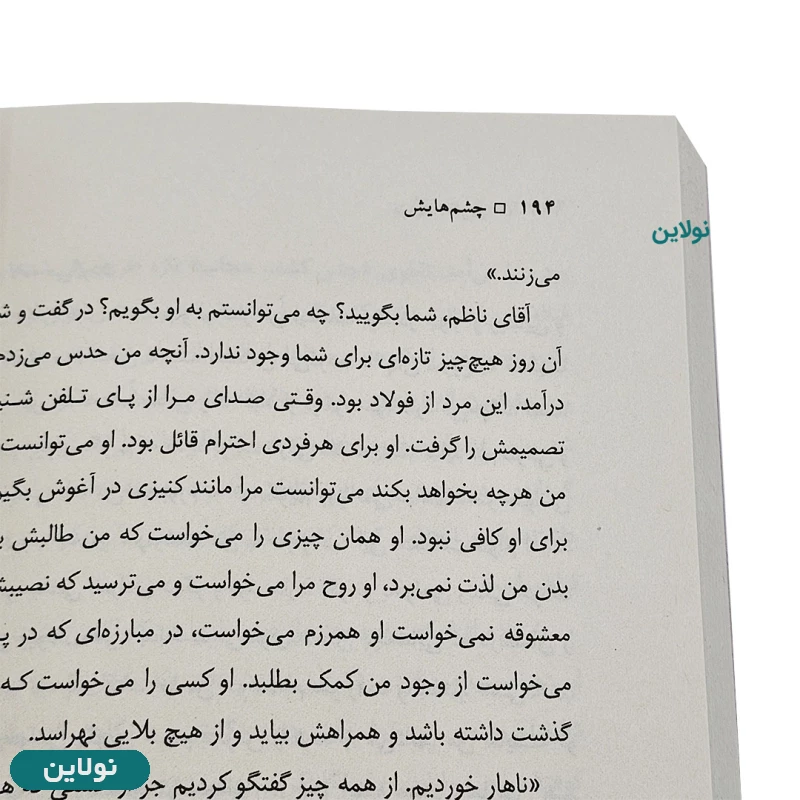 ۱۹۴ □ چشم‌هایش
نولاین
می‌زنند.»
آقای ناظم، شما بگویید؟ چه می‌توانستم به او بگویم؟ در گفت و
آن روز هیچ‌چیز تازه‌ای برای شما وجود ندارد. آنچه من حدس می‌زدم
درآمد. این مرد از فولاد بود. وقتی صدای مرا از پای تلفن
تصمیمش را گرفت. او برای هرفردی احترام قائل بود. او می‌توانست
من هرچه بخواهد بکند می‌توانست مرا مانند کنیزی در آغوش
برای او کافی نبود. او همان چیزی را می‌خواست که من طالبش
بدن من لذت نمی‌برد، او روح مرا می‌خواست و می‌ترسید که
معشوقه نمی‌خواست او همرزم می‌خواست، در مبارزه‌ای که در
می‌خواست از وجود من کمک بطلبد. او کسی را می‌خواست که
گذشت داشته باشد و همراهش بیاید و از هیچ بلایی نهراسد.
«ناهار خوردیم. از همه چیز گفتگو کردیم جز
نولاین